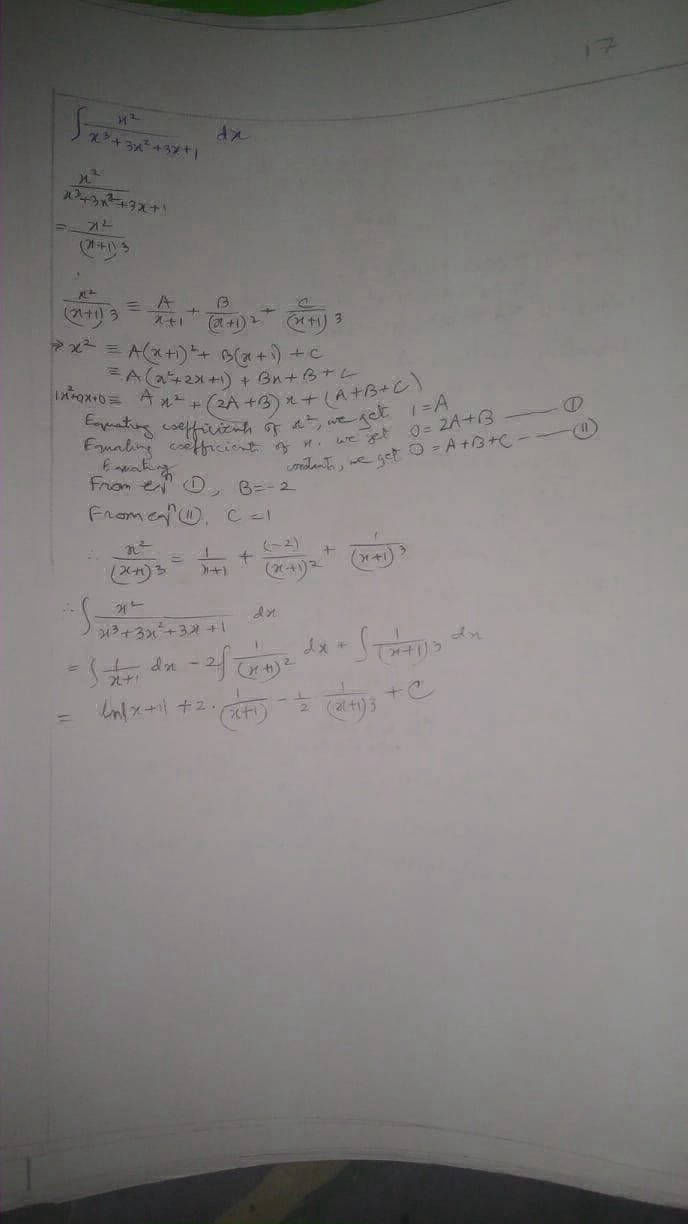 17
∫ x²/(x³+3x²+3x+1) dx
x²/(x³+3x²+3x+1)
= x²/(x+1)³
x²/(x+1)³ ≡ A/(x+1) + B/(x+1)² + C/(x+1)³
⇒ x² ≡ A(x+1)² + B(x+1) + C
≡ A(x²+2x+1) + Bx + B + C
1x²+0x+0 ≡ Ax² + (2A+B)x + (A+B+C)
Equating coefficient of x², we get 1 = A
Equating coefficient of x, we get 0 = 2A+B —— (I)
Equating constant, we get 0 = A+B+C —— (II)
From eqⁿ (I), B = -2
From eqⁿ (II), C = 1
∴ x²/(x+1)³ = 1/(x+1) + (-2)/(x+1)² + 1/(x+1)³
∴ ∫ x²/(x³+3x²+3x+1) dx
= ∫ 1/(x+1) dx - 2∫ 1/(x+1)² dx + ∫ 1/(x+1)³ dx
= ln|x+1| + 2 · 1/(x+1) - 1/2 1/(x+1)3 + C